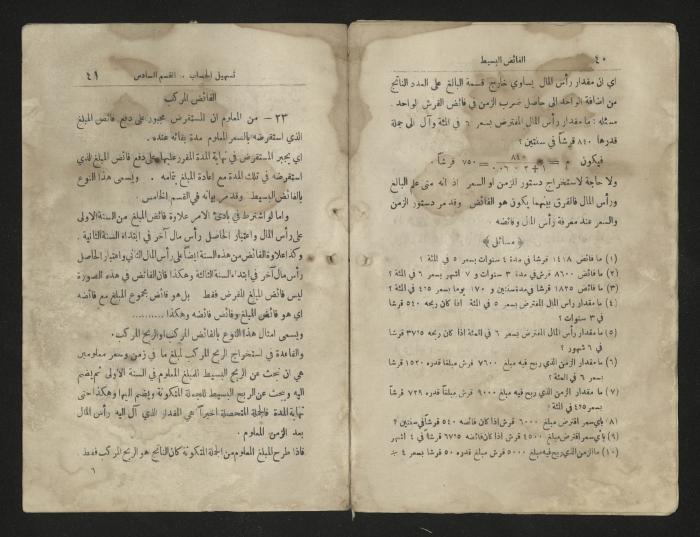 ٤٠
الفائض البسيط
اي ان مقدار رأس المال يساوي خارج قسمة البالغ على العدد الناتج
من اضافة الواحد الى حاصل ضرب الزمن في فائض القرش الواحد .
مسئله : ما مقدار رأس المال المقترض بسعر ٦ في المئة وآل الى جملة
قدرها ٨٤٠ قرشاً في سنتين ؟
فيكون م = ٨٤٠ = ٧٥٠ قرشاً .
ولا حاجة لاستخراج دستور للزمن او السعر اذ انه متى علم البالغ
ورأس المال فالفرق بينهما يكون هو الفائض وقد مر دستور الزمن
والسعر عند معرفة رأس المال وفائضه .
﴿ مسائل ﴾
(١) ما فائض ١٤١٨ قرشا في مدة ٤ سنوات بسعر ٥ في المئة ؟
(٢) ما فائض ٨٦٠٠ قرش في مدة ٣ سنوات و ٧ اشهر بسعر ٦ في المئة ؟
(٣) ما فائض ١٨٢٥ قرشا في مدة سنتين و ١٧٠ يوما بسعر ٤٢٥ في المئة ؟
(٤) ما مقدار راس المال المقترض بسعر ٥ في المئة اذا كان ربحه ٥٤٠ قرشا
في ٣ سنوات ؟
(٥) ما مقدار رأس المال المقترض بسعر ٦ في المئة اذا كان ربحه ٣٧٥ قرشا
في ٦ شهور ؟
(٦) ما مقدار الزمن الذي ربح فيه مبلغ ٧٦٠٠ قرش مبلغا قدره ١٥٢٠ قرشا
بسعر ٦ في المئة ؟
(٧) ما مقدار الزمن الذي ربح فيه مبلغ ٩٠٠٠ قرش مبلغاً قدره ٧٢٩ قرشاً
بسعر ٤٢٥ في المئة ؟
(٨) باي سعر اقترض مبلغ ٦٠٠٠ قرش اذا كان فائضه ٥٤٠ قرشاً في سنتين ؟
(٩) باي سعر اقترض مبلغ ٤٥٠٠ قرش اذا كان فائضه ٦٧٥ قرشا في ٤ اشهر
(١٠) ما الزمن الذي ربح فيه مبلغ ٥٠٠٠ قرش مبلغ قدره ٥٠ قرشا بسعر ٤
تسهيل الحساب . القسم السادس
٤١
الفائض المركب
٢٣ – من المعلوم ان المستقرض مجبور على دفع فائض المبلغ
الذي استقرضه بالسعر المعلوم مدة بقائه عنده .
اي يجبر المستقرض في نهاية المدة المقرر عليها على دفع فائض المبلغ الذي
استقرضه في تلك المدة مع إعادة المبلغ بتمامه . ويسمى هذا النوع
بالفائض البسيط وقد مر بيانه في القسم الخامس .
واما لو اشترط في بادئ الامر علاوة فائض المبلغ من السنة الاولى
على رأس المال واعتبار الحاصل رأس مال آخر في ابتداء السنة الثانية .
وكذا علاوة الفائض من هذه السنة ايضاً على رأس المال الثاني واعتبار الحاصل
رأس مال آخر في ابتداء السنة الثالثة وهكذا فان الفائض في هذه الصورة
ليس فائض المبلغ المقرض فقط بل هو فائض مجموع المبلغ مع فائضه
اي هو فائض المبلغ وفائض فائضه وهكذا ..........
ويسمى امثال هذا النوع بالفائض المركب او الربح المركب .
والقاعدة في استخراج الربح المركب لمبلغ ما في زمن وسعر معلومين
هي ان نبحث عن الربح البسيط للمبلغ المعلوم في السنة الأولى ثم يضم
اليه ونبحث عن الربح البسيط للجملة المتكونة ويضم اليها وهكذا حتى
نهاية المدة فالجملة المتحصلة اخيراً هي المقدار الذي آل اليه رأس المال
بعد الزمن المعلوم .
فاذا طرح المبلغ المعلوم من الجملة المتكونة كان الناتج هو الربح المركب فقط .
٦